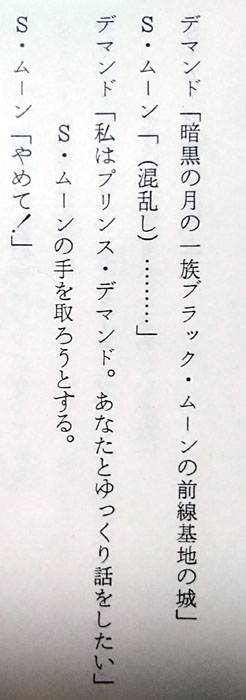 デマンド「暗黒の月の一族ブラック・ムーンの前線基地の城」
S・ムーン「（混乱し）…………」
デマンド「私はプリンス・デマンド。あなたとゆっくり話をしたい」
S・ムーンの手を取ろうとする。
S・ムーン「やめて！」